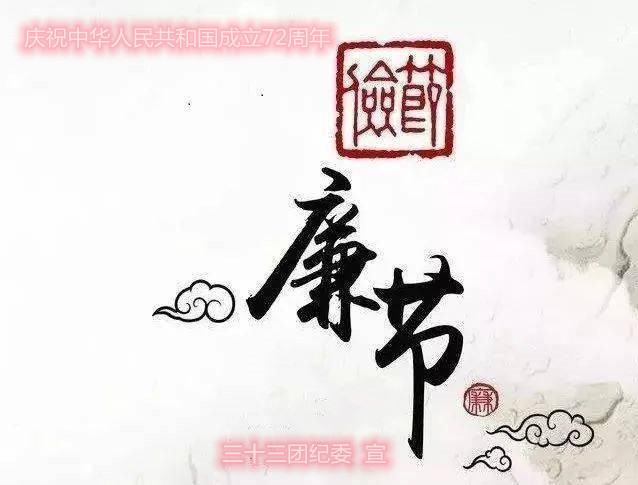 庆祝中华人民共和国成立72周年
節儉
廉节
廉
三十三团纪委 宣